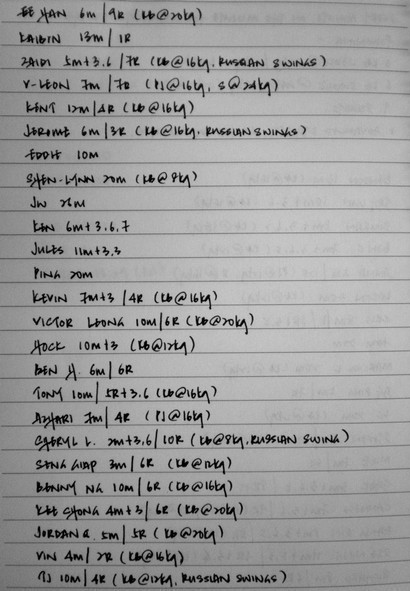 EE JIAN 6m / 9R (KB@20kg)
KAIBIN 13m / 1R
ZAIDI 5m+3.6 / 7R (KB@16kg, RUSSIAN SWINGS)
V-LEON 7m / 7R (PJ@16kg, S@24kg)
KENT 12m / 4R (KB@16kg)
JEROME 6m / 3R (KB@16kg, RUSSIAN SWINGS)
EDDIE 10m
SHEN-LYNN 20m (KB@8kg)
JW
KEN 6m+3.6.7
JULES 11m+3.3
PING 20m
KEVIN 7m+3 / 4R (KB@16kg)
VICTOR LEONG 10m / 6R (KB@20kg)
HOCK 10m+3 (KB@12kg)
BEN H. 6m / 6R
TONY 10m / 5R+3.6 (KB@16kg)
AZHARI 7m / 4R (PJ@16kg)
CHERYL L. 2m+3.6 / 10R (KB@8kg, RUSSIAN SWING)
SENG GIAP 3m / 6R (KB@12kg)
BENNY NG 10m / 6R (KB@16kg)
KEE CHONG 4m+3 / 6R (KB@20kg)
JORDAN 5m / 5R (KB@20kg)
VIN 4m / 2R (KB@16kg)
TJ 10m / 4R (KB@12kg, RUSSIAN SWINGS)